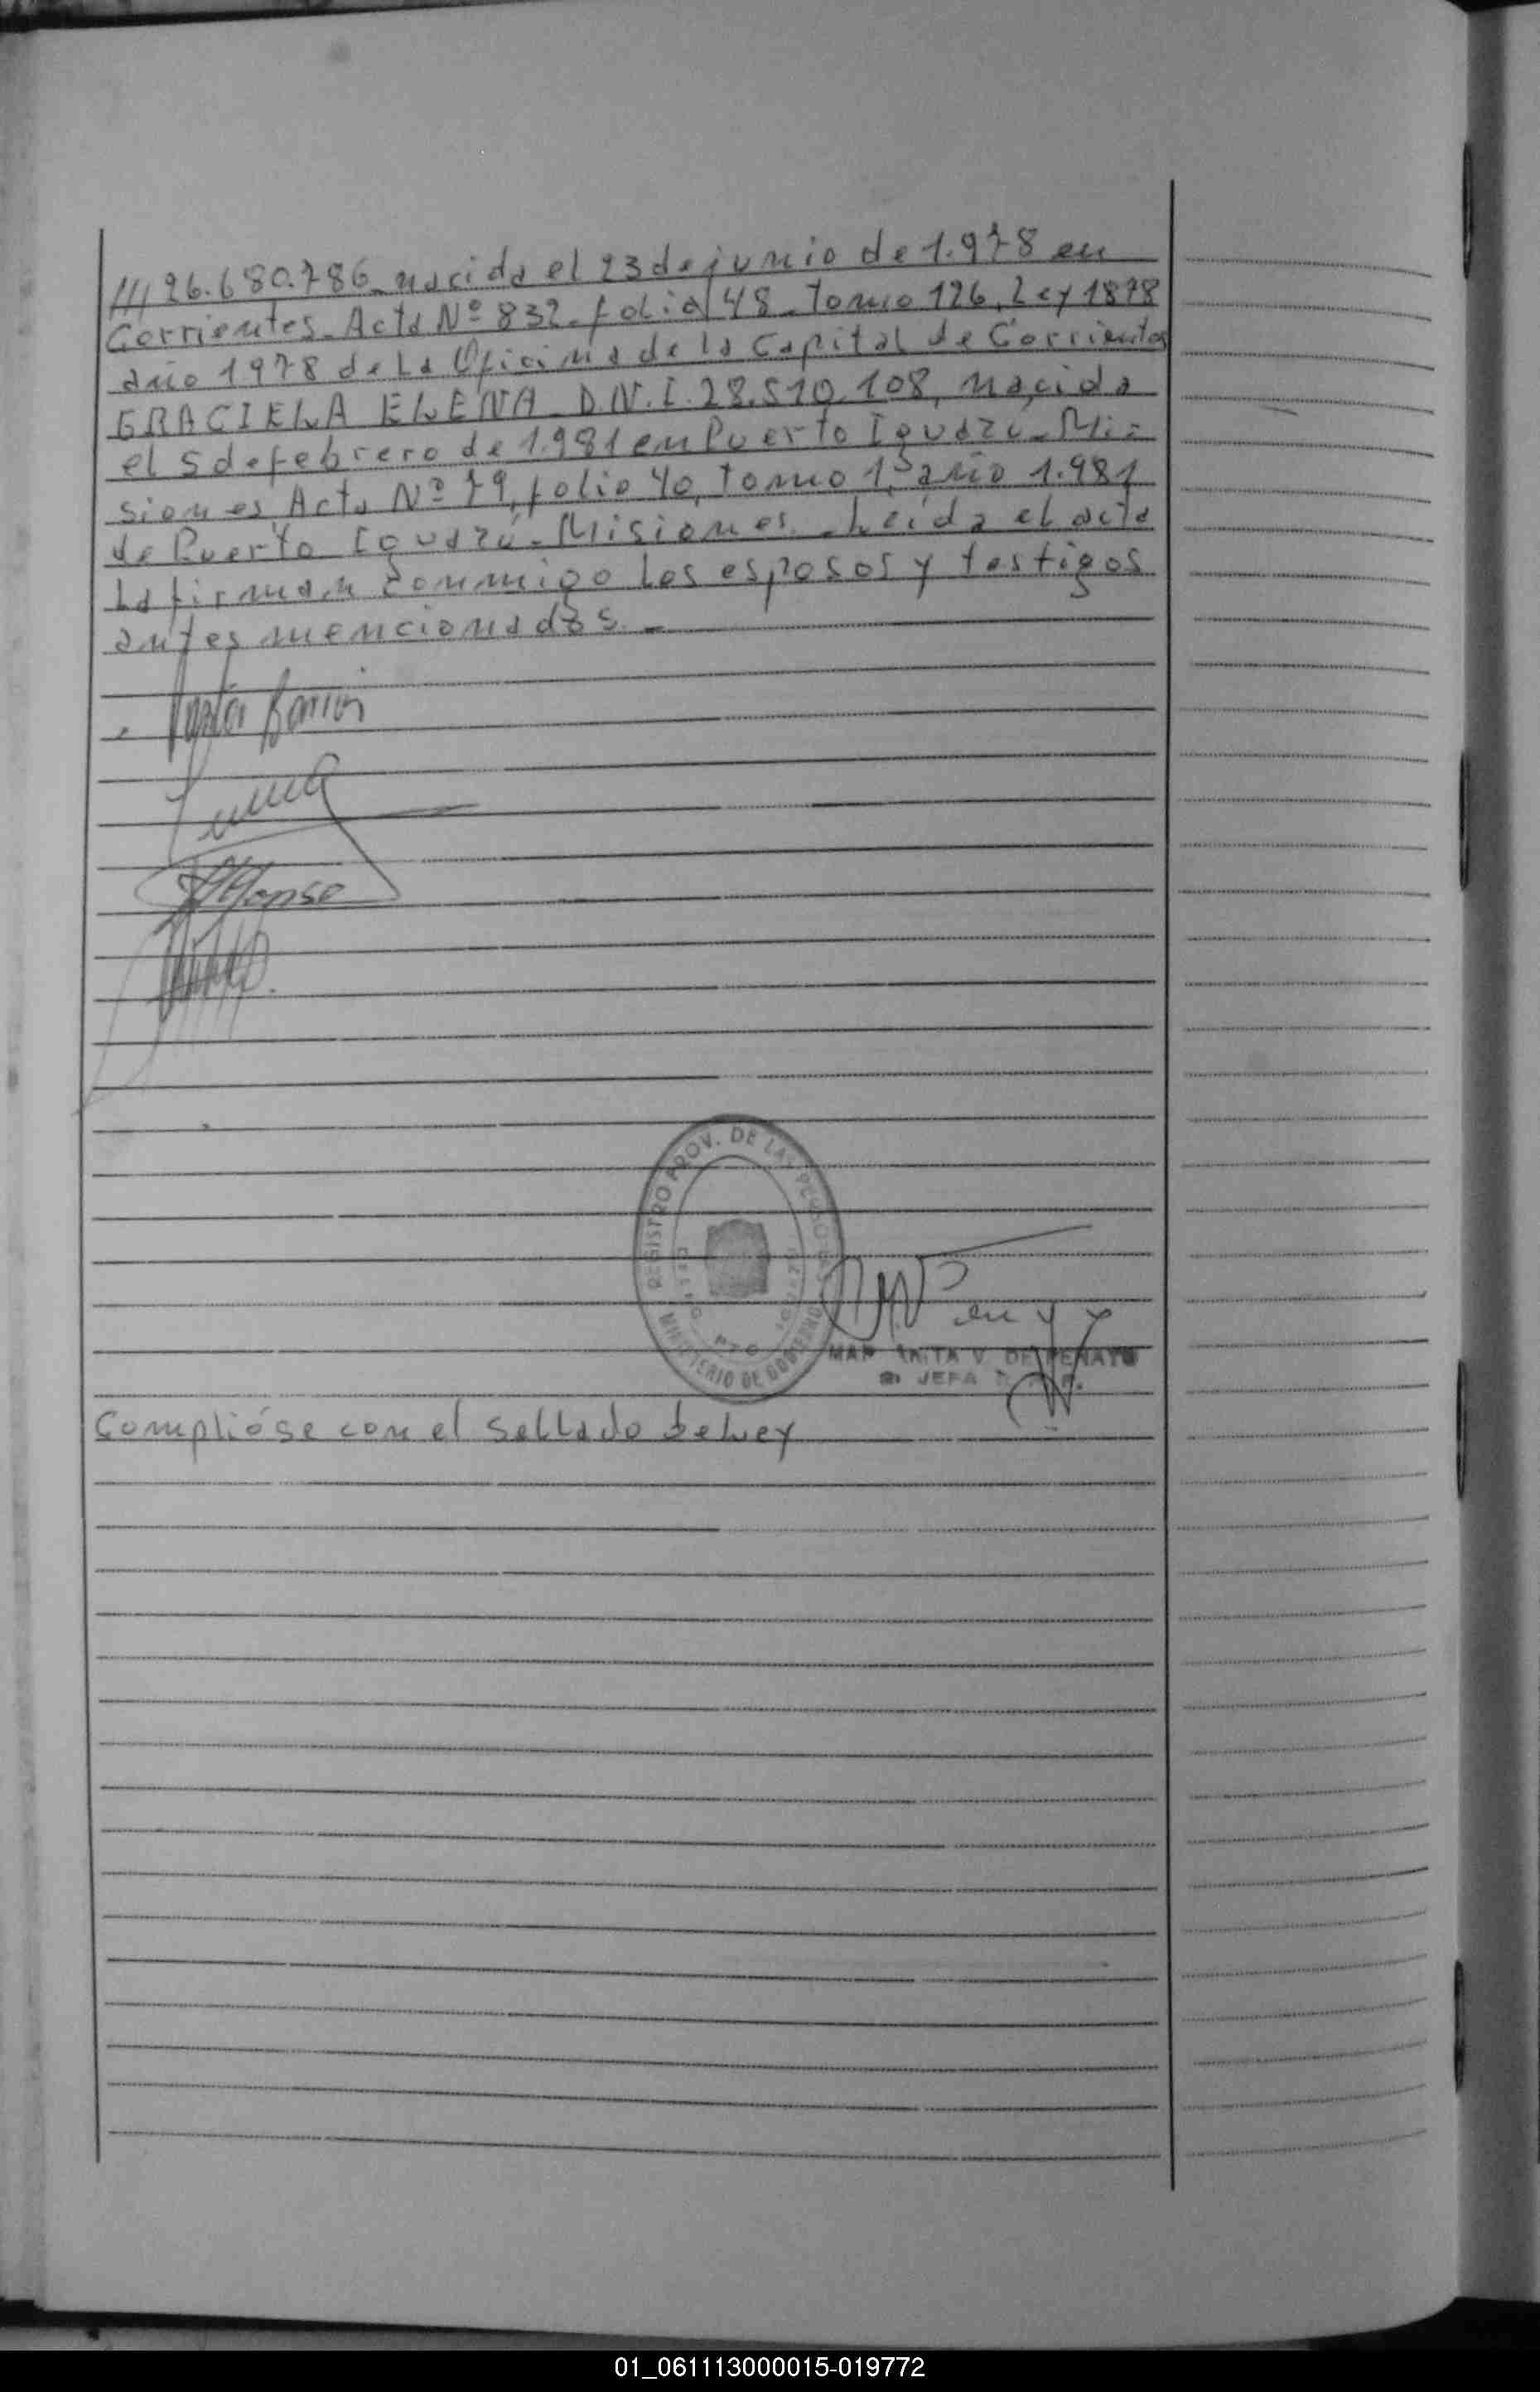 /// 26.680.786_ nacida el 23 de junio de 1.978 en
Corrientes_ Acta Nº 832_ folio 48_ Tomo 126, Ley 1878
año 1978 de La Oficina de la Capital de Corrientes
GRACIELA ELENA_ D.N.I. 28.510.108, nacida
el 5 de febrero de 1.981 en Puerto Iguazú_ Mi=
siones Acta Nº 79, folio 40, Tomo 1º, año 1.981
de Puerto Iguazú_ Misiones_ Leída el acta
La firman conmigo Los esposos y testigos
antes mencionados._
REGISTRO PROV. DE LAS PERSONAS
MINISTERIO DE GOBIERNO
JEFA
Complióse con el sellado de Ley
01_061113000015-019772